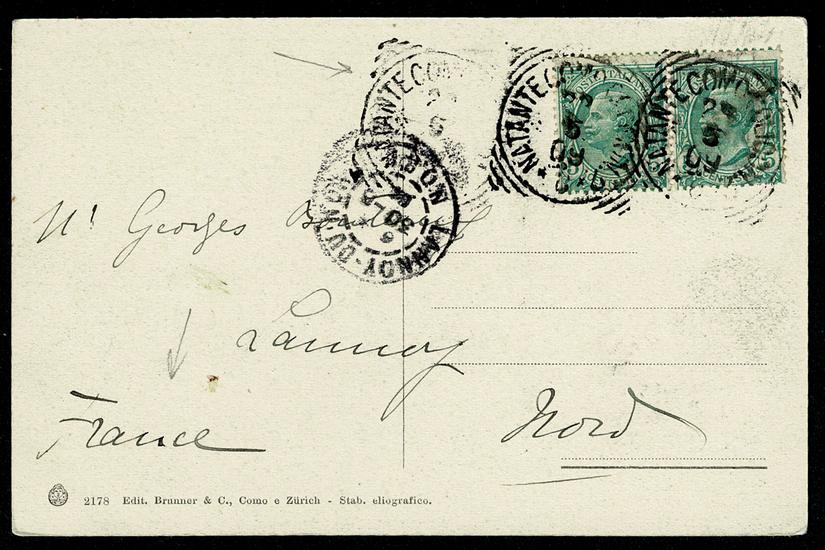 NATANTE COMO
NATANTE COMO
NATANTE COMO
POSTE ITALIANE
LANNOY-DU-NORD
Mr Georges
Lannoy
France
Nord
2178 Edit. Brunner & C., Como e Zürich - Stab. eliografico.